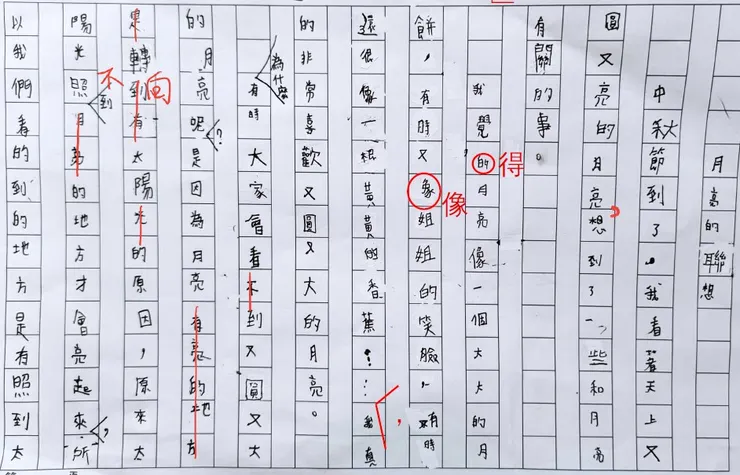 月亮的聯想
中秋節到了。我看著天上又
圓又亮的月亮想到了一些和月亮
有關的事。
我覺的月亮像一個大大的月
得
餅，有時又像姐姐的笑臉，有時
像
還很像一根黃黃的香蕉！我真
的非常喜歡又圓又大的月亮。
為什麼有時大家會看不到又圓又大
的月亮呢？是因為月亮有亮的地方
是轉到有太陽光的原因，原來太
不向
陽光照到月亮的地方才會亮起來，所
以我們看的到的地方是有照到太